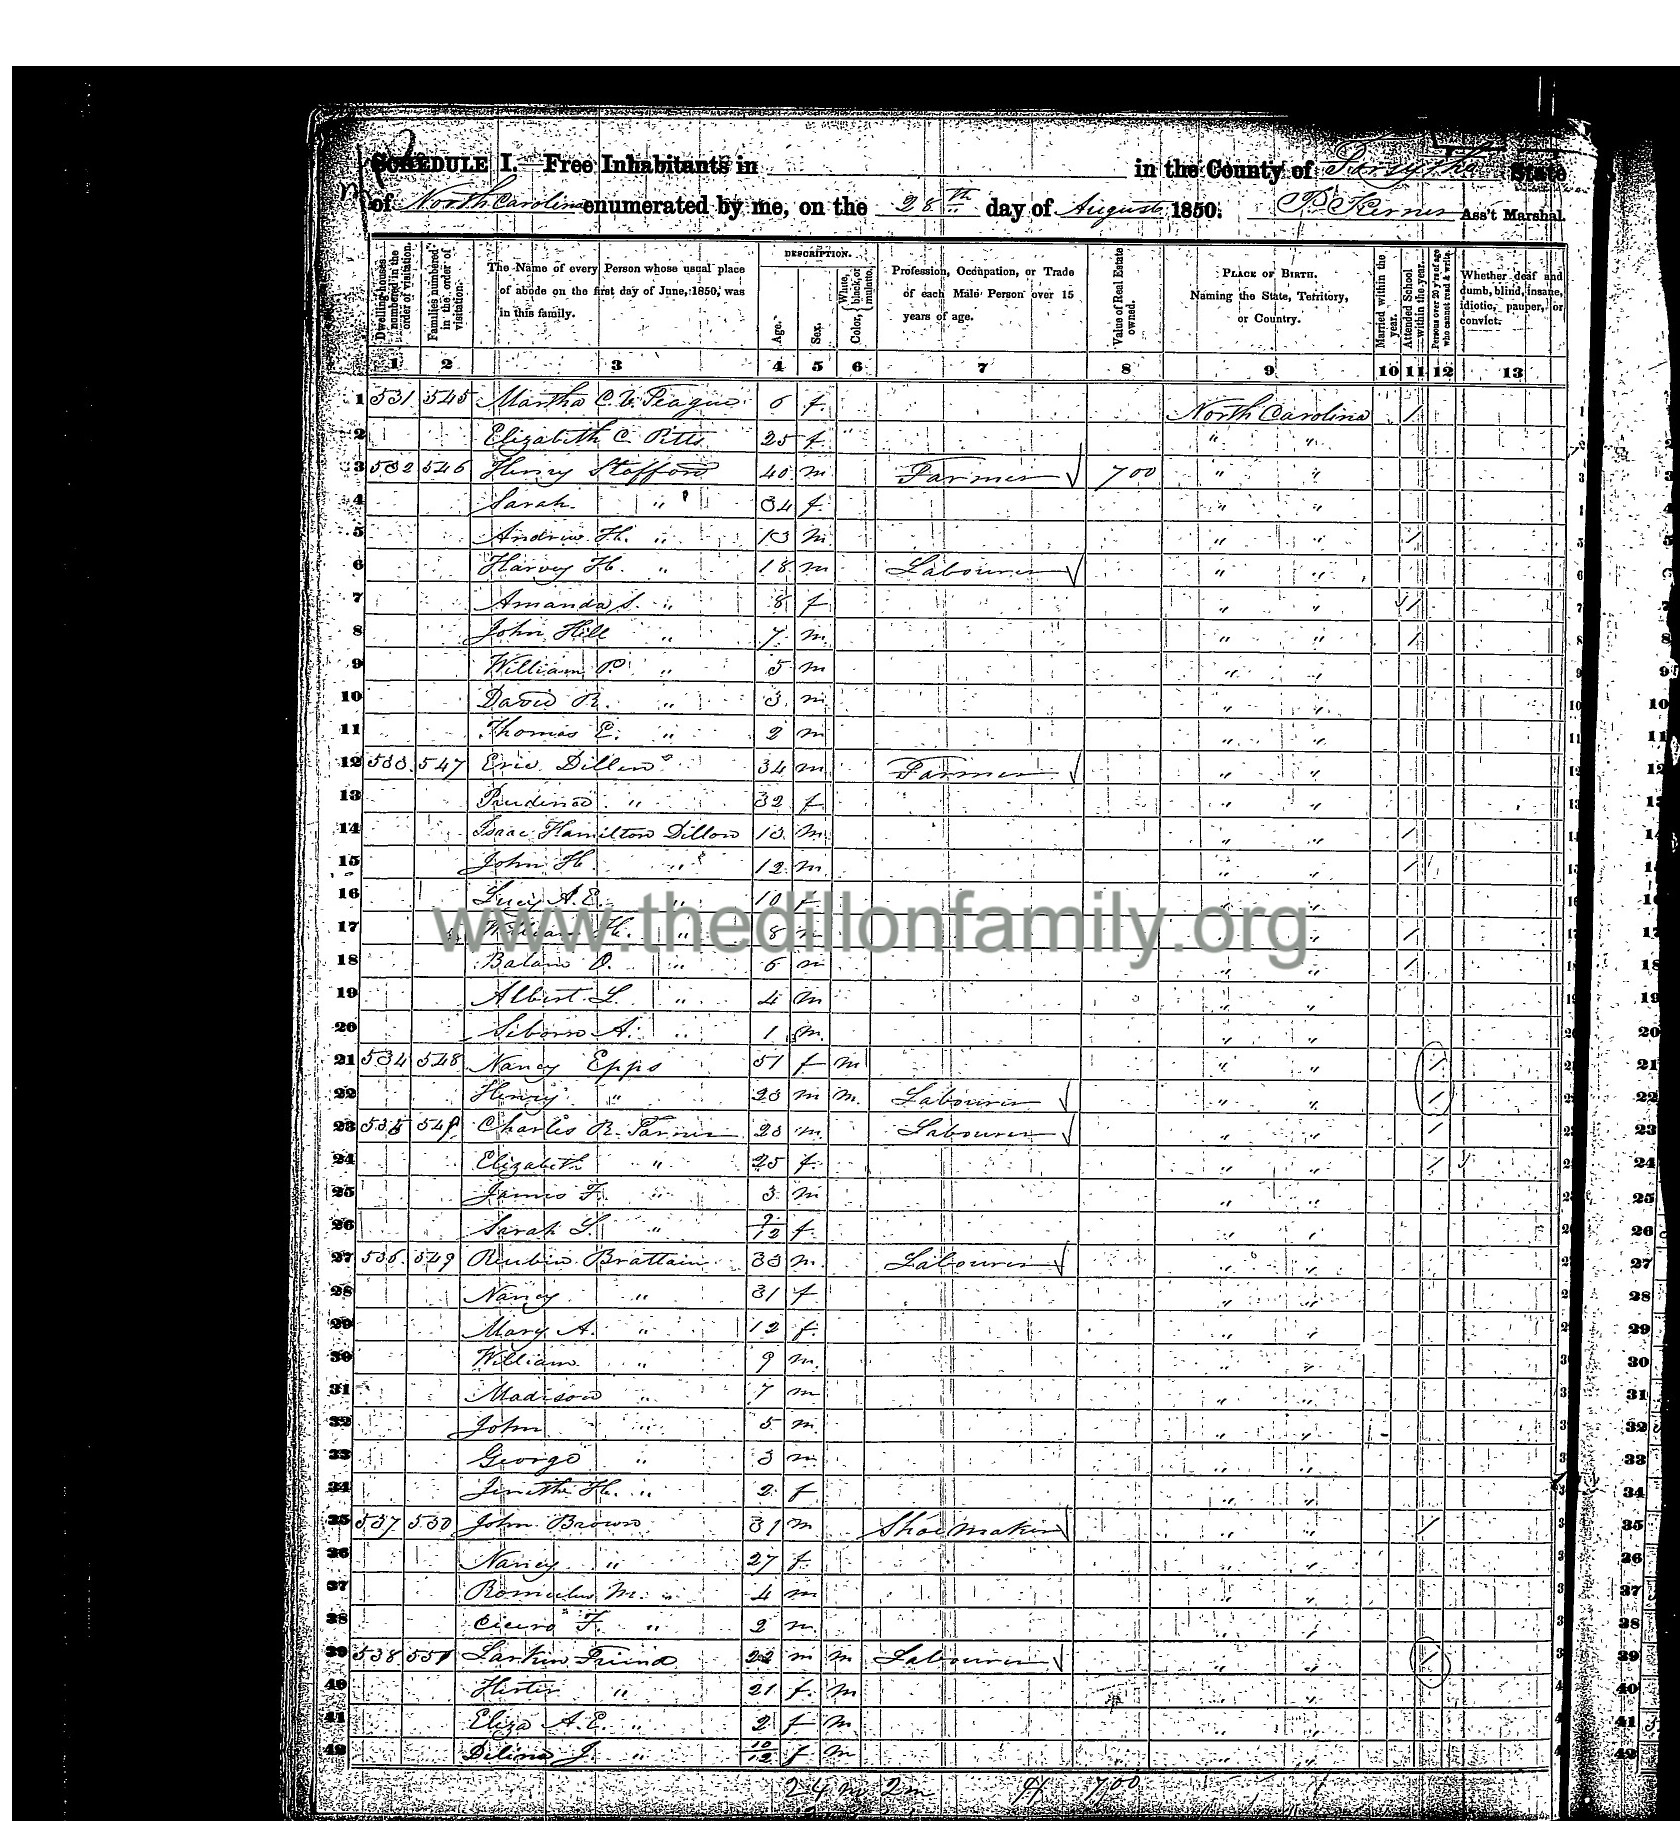 SCHEDULE I.—Free Inhabitants in in the County of Forsythe State
of North Carolina enumerated by me, on the 28th day of August 1850. P. Kerner Ass't Marshal.
Dwelling-houses numbered in the order of visitation.
Families numbered in the order of visitation.
The Name of every Person whose usual place of abode on the first day of June, 1850, was in this family.
DESCRIPTION.
Age.
Sex.
Color, White, black, or mulatto.
Profession, Occupation, or Trade of each Male Person over 15 years of age.
Value of Real Estate owned.
PLACE OF BIRTH. Naming the State, Territory, or Country.
Married within the year.
Attended School within the year.
Persons over 20 y'rs of age who cannot read & write.
Whether deaf and dumb, blind, insane, idiotic, pauper, or convict.
1 2 3 4 5 6 7 8 9 10 11 12 13
1 531 545 Martha C. V. Teague 6 f. North Carolina / 1
2 Elizabeth C. Pitts 25 f " "
3 532 546 Henry Stafford 40 m Farmer 700 " " 3
4 Sarah " 34 f. " "
5 Andrew H. " 13 m " " /
6 Harvey H. " 18 m Labourer " "
7 Amanda S. " 8 f " " /
8 John Hill " 7 m " " /
9 William P. " 5 m " "
10 David R. " 3 m " "
11 Thomas E. " 2 m " "
12 533 547 Dillon 34 m Farmer " "
13 " 32 f " "
14 Isaac Hamilton Dillon 13 m " " /
15 John H " 12 m " " /
16 Lucy A. E. " 10 f " "
www.thedillonfamily.org
17 William H. " 8 m " " /
18 " 6 m " " /
19 Albert L. " 4 m " "
20 A. " 1 m " "
21 534 548 Nancy Epps 51 f m " " /
22 Henry " 23 m m Labourer " " /
23 535 549 Charles R. 23 m Labourer " " /
24 Elizabeth " 25 f. " " /
25 James F. " 3 m " "
26 Sarah L. " 9/12 f " "
27 536 549 Reubin Brattain 33 m Labourer " "
28 Nancy " 31 f " "
29 Mary A. " 12 f. " "
30 William " 9 m " "
31 Madison " 7 m " "
32 John " 5 m " "
33 George " 3 m " "
34 H. " 2 f " "
35 537 550 John Brown 31 m Shoemaker " " /
36 Nancy " 27 f " "
37 Romulus M. " 4 m " "
38 Cicero F. " 2 m " "
39 538 551 Larkin Friend 22 m m Labourer " " /
40 " 21 f. m " "
41 Eliza A. E. " 2 f m " "
42 J. " 10/12 f m " "
24 m 2m 700